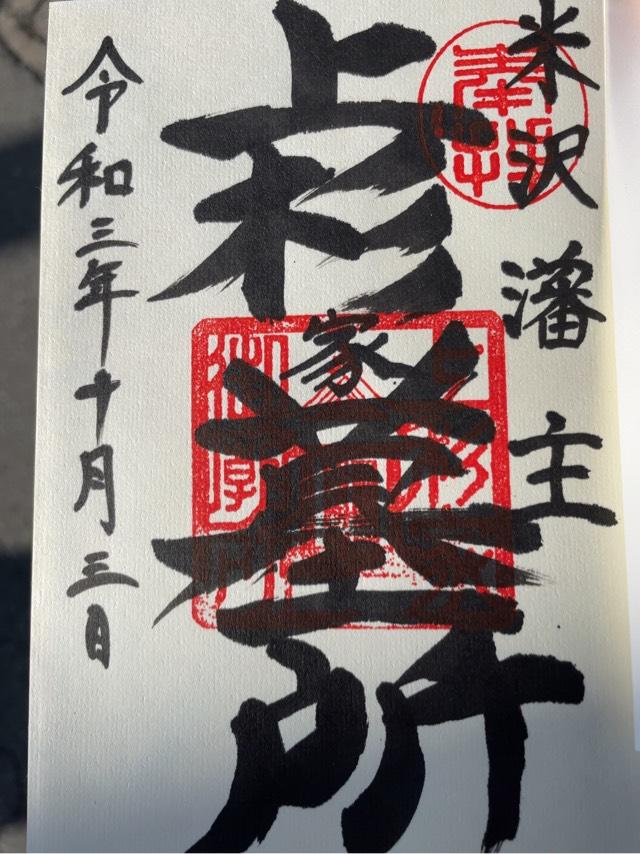 奉拝
米沢藩主
上杉家墓所
令和三年十月三日